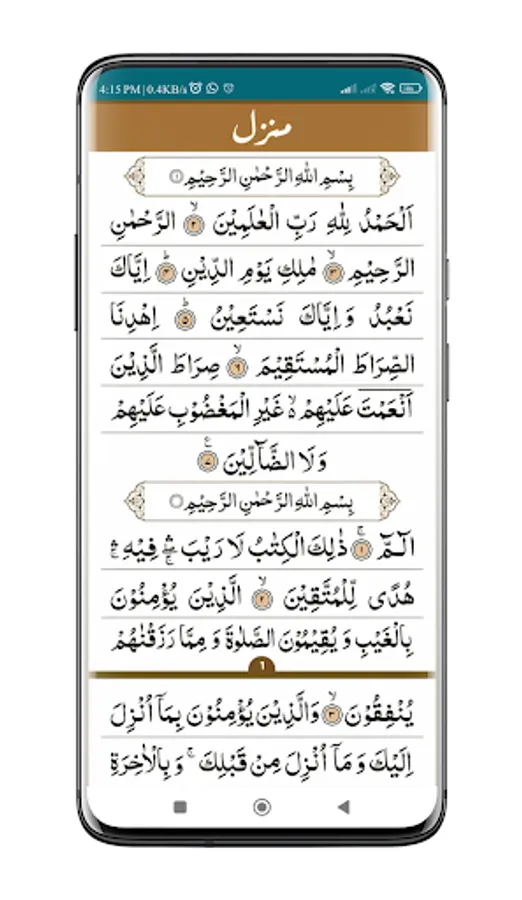 4:15 PM | 0.4KB/s
منزل
بِسْمِ اللهِ الرَّحْمٰنِ الرَّحِيْمِ ۝١
اَلْحَمْدُ لِلّٰهِ رَبِّ الْعٰلَمِيْنَ ۝٢ۙ الرَّحْمٰنِ
الرَّحِيْمِ ۝٣ۙ مٰلِكِ يَوْمِ الدِّيْنِ ۝٤ؕ اِيَّاكَ
نَعْبُدُ وَاِيَّاكَ نَسْتَعِيْنُ ۝٥ؕ اِهْدِنَا
الصِّرَاطَ الْمُسْتَقِيْمَ ۝٦ۙ صِرَاطَ الَّذِيْنَ
اَنْعَمْتَ عَلَيْهِمْ ۙ۬ غَيْرِ الْمَغْضُوْبِ عَلَيْهِمْ
وَلَا الضَّآلِّيْنَ ۝٧ۧ
بِسْمِ اللهِ الرَّحْمٰنِ الرَّحِيْمِ
الٓمّٓ ۝١ۚ ذٰلِكَ الْكِتٰبُ لَا رَيْبَ ۛۖ فِيْهِ ۛ
هُدًى لِّلْمُتَّقِيْنَ ۝٢ۙ الَّذِيْنَ يُؤْمِنُوْنَ
بِالْغَيْبِ وَيُقِيْمُوْنَ الصَّلٰوةَ وَمِمَّا رَزَقْنٰهُمْ
١
يُنْفِقُوْنَ ۝٣ۙ وَالَّذِيْنَ يُؤْمِنُوْنَ بِمَآ اُنْزِلَ
اِلَيْكَ وَمَآ اُنْزِلَ مِنْ قَبْلِكَ ۚ وَبِالْاٰخِرَةِ